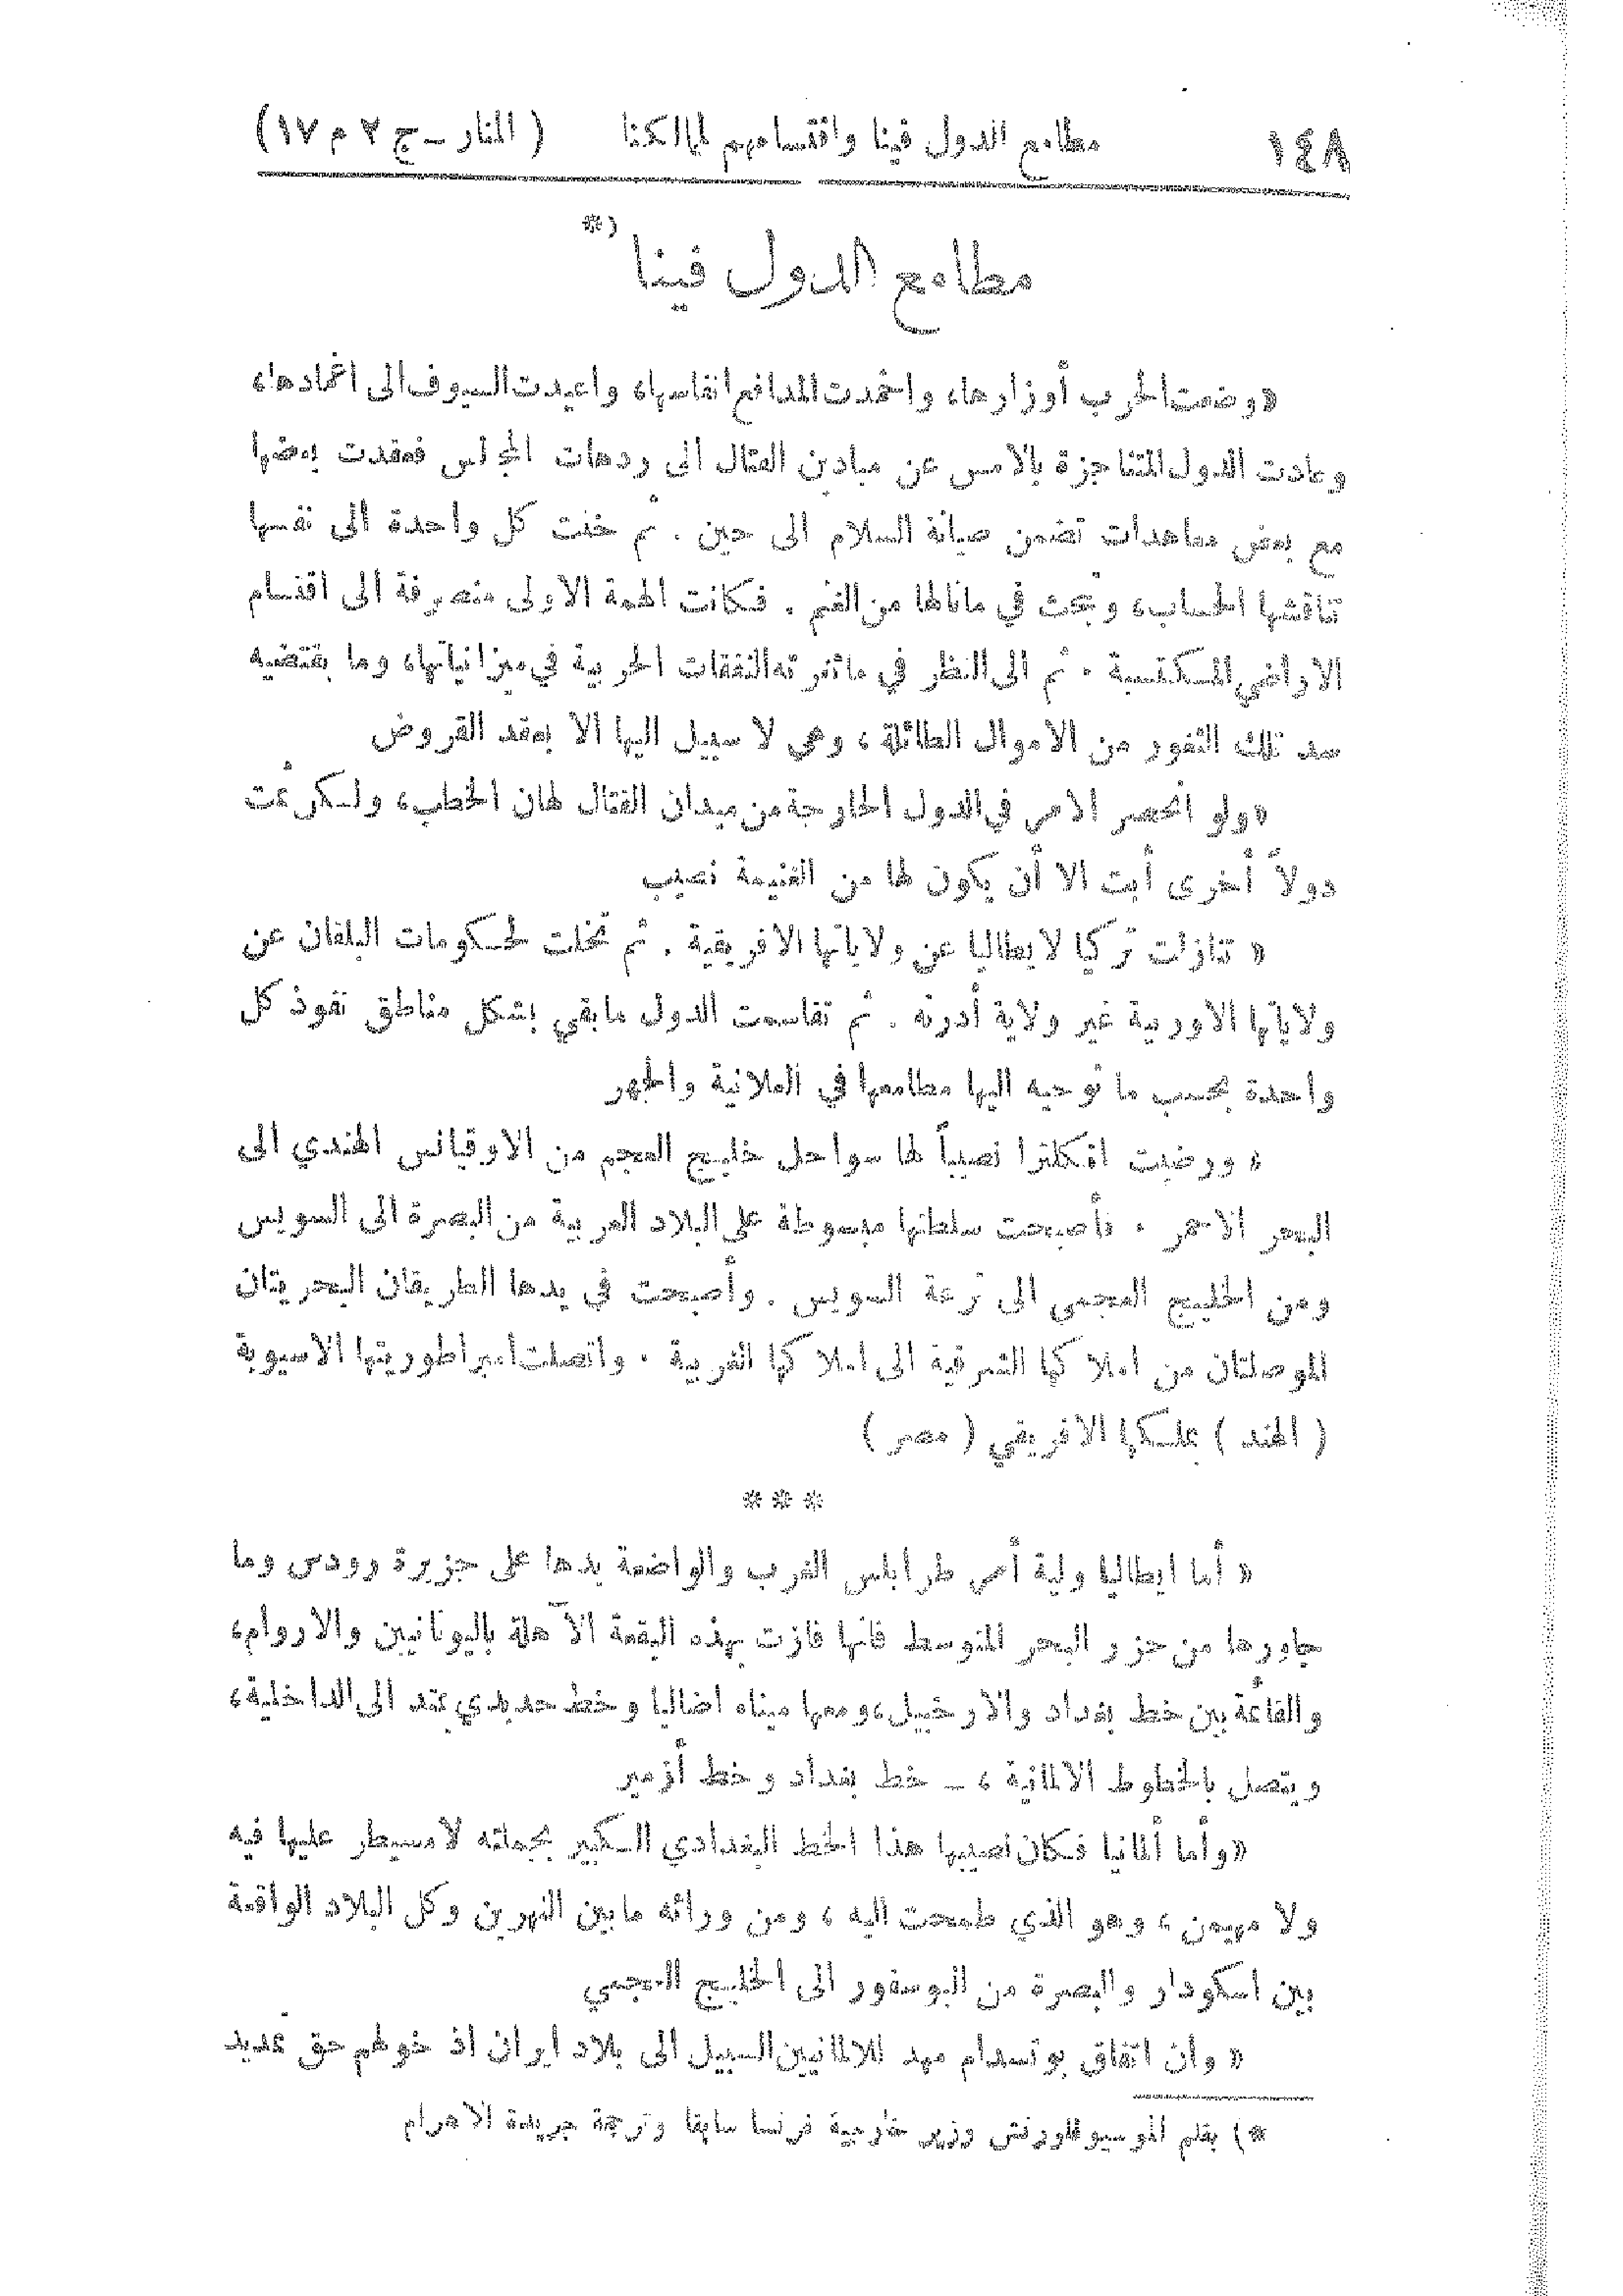 ١٤٨ مطامع الدول فينا واقتسامهم لممالكنا ( المنار – ج ٢ م ١٧)
مطامع الدول فينا *)
«وضعت الحرب أوزارها، واخمدت المدافع انفاسها، واعيدت السيوف الى اغمادها،
وعادت الدول المتناجزة بالامس عن ميادين القتال الى ردهات المجالس فعقدت بعضها
مع بعض معاهدات تضمن صيانة السلام الى حين . ثم خلت كل واحدة الى نفسها
تناقشها الحساب، وتبحث في مانالها من الغنم . فكانت الهمة الاولى منصرفة الى اقتسام
الاراضي المكتسبة . ثم الى النظر في ماثغرته النفقات الحربية في ميزانياتها، وما يقتضيه
سد تلك الثغور من الاموال الطائلة ، وهي لا سبيل اليها الا بعقد القروض
«ولو انحصر الامر في الدول الخارجة من ميدان القتال لهان الخطب، ولكن ثمت
دولاً أخرى أبت الا أن يكون لها من الغنيمة نصيب
« تنازلت تركيا لايطاليا عن ولاياتها الافريقية . ثم تخلت لحكومات البلقان عن
ولاياتها الاوربية غير ولاية أدرنه . ثم تقاسمت الدول مابقي بشكل مناطق نفوذ كل
واحدة بحسب ما توحيه اليها مطامعها في العلانية والجهر
« ورضيت انكلترا نصيباً لها سواحل خليج العجم من الاوقيانس الهندي الى
البحر الاحمر . فأصبحت سلطتها مبسوطة على البلاد العربية من البصرة الى السويس
ومن الخليج العجمي الى ترعة السويس . وأصبحت في يدها الطريقان البحريتان
الموصلتان من املاكها الشرقية الى املاكها الغربية . واتصلت امبراطوريتها الاسيوية
( الهند ) بملكها الافريقي ( مصر )
* * *
« أما ايطاليا ولية أمر طرابلس الغرب والواضعة يدها على جزيرة رودس وما
جاورها من جزر البحر المتوسط فانها فازت بهذه البقعة الآهلة باليونانيين والاروام،
والقائمة بين خط بغداد والارخبيل، ومعها ميناء اضاليا وخط حديدي يمتد الى الداخلية،
ويتصل بالخطوط الالمانية ، – خط بغداد وخط أزمير
«وأما ألمانيا فكان نصيبها هذا الخط البغدادي الكبير بجملته لا مسيطر عليها فيه
ولا مهيمن ، وهو الذي طمحت اليه ، ومن ورائه مابين النهرين وكل البلاد الواقعة
بين اسكودار والبصرة من البوسفور الى الخليج العجمي
« وان اتفاق بوتسدام مهد للالمانيين السبيل الى بلاد ايران اذ خولهم حق تمديد
*) بقلم الموسيو فلورنس وزير خارجية فرنسا سابقا وترجمة جريدة الاهرام